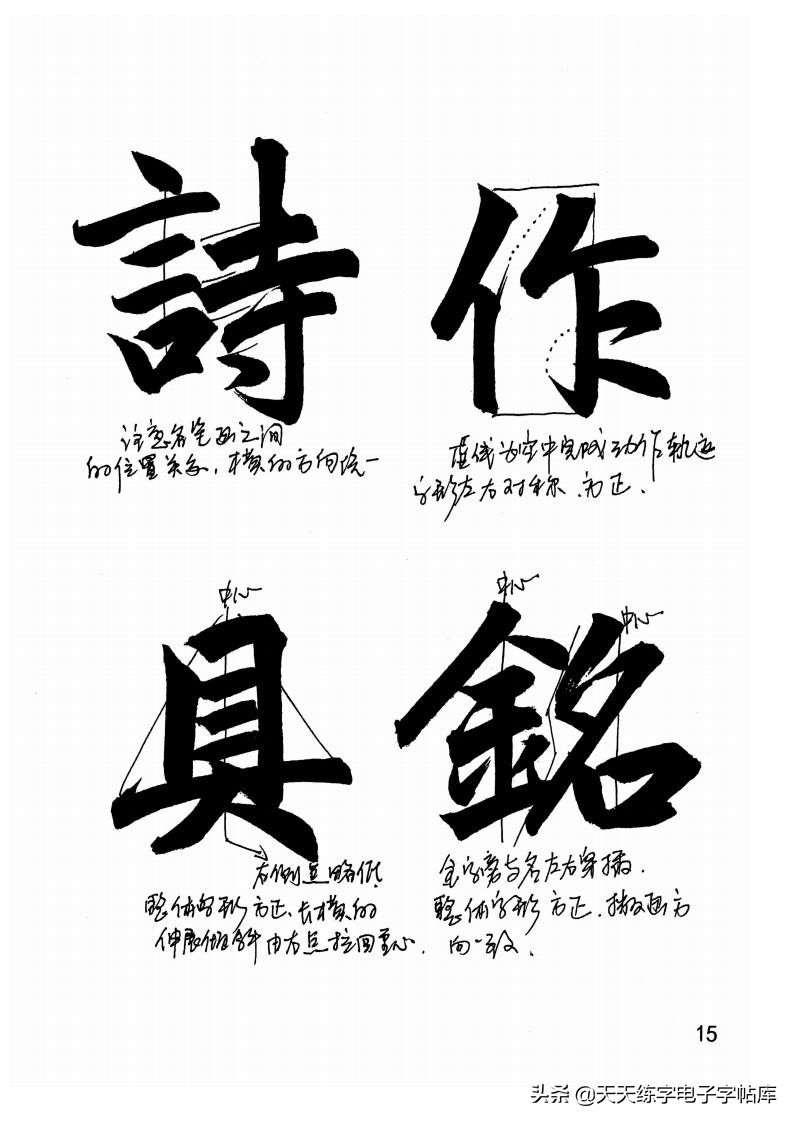 詩
作
注意各笔画之间
的位置关系，横的方向统一
虚线为空中完成动作轨迹
字形左右对称、方正．
中心
具
中心
中心
銘
右侧点略低
整体字形方正、长横的
伸展倾斜由右点拉回重心．
金字旁与名左右穿插．
整体字形方正．撇画方
向一致．
15
头条 @天天练字电子字帖库